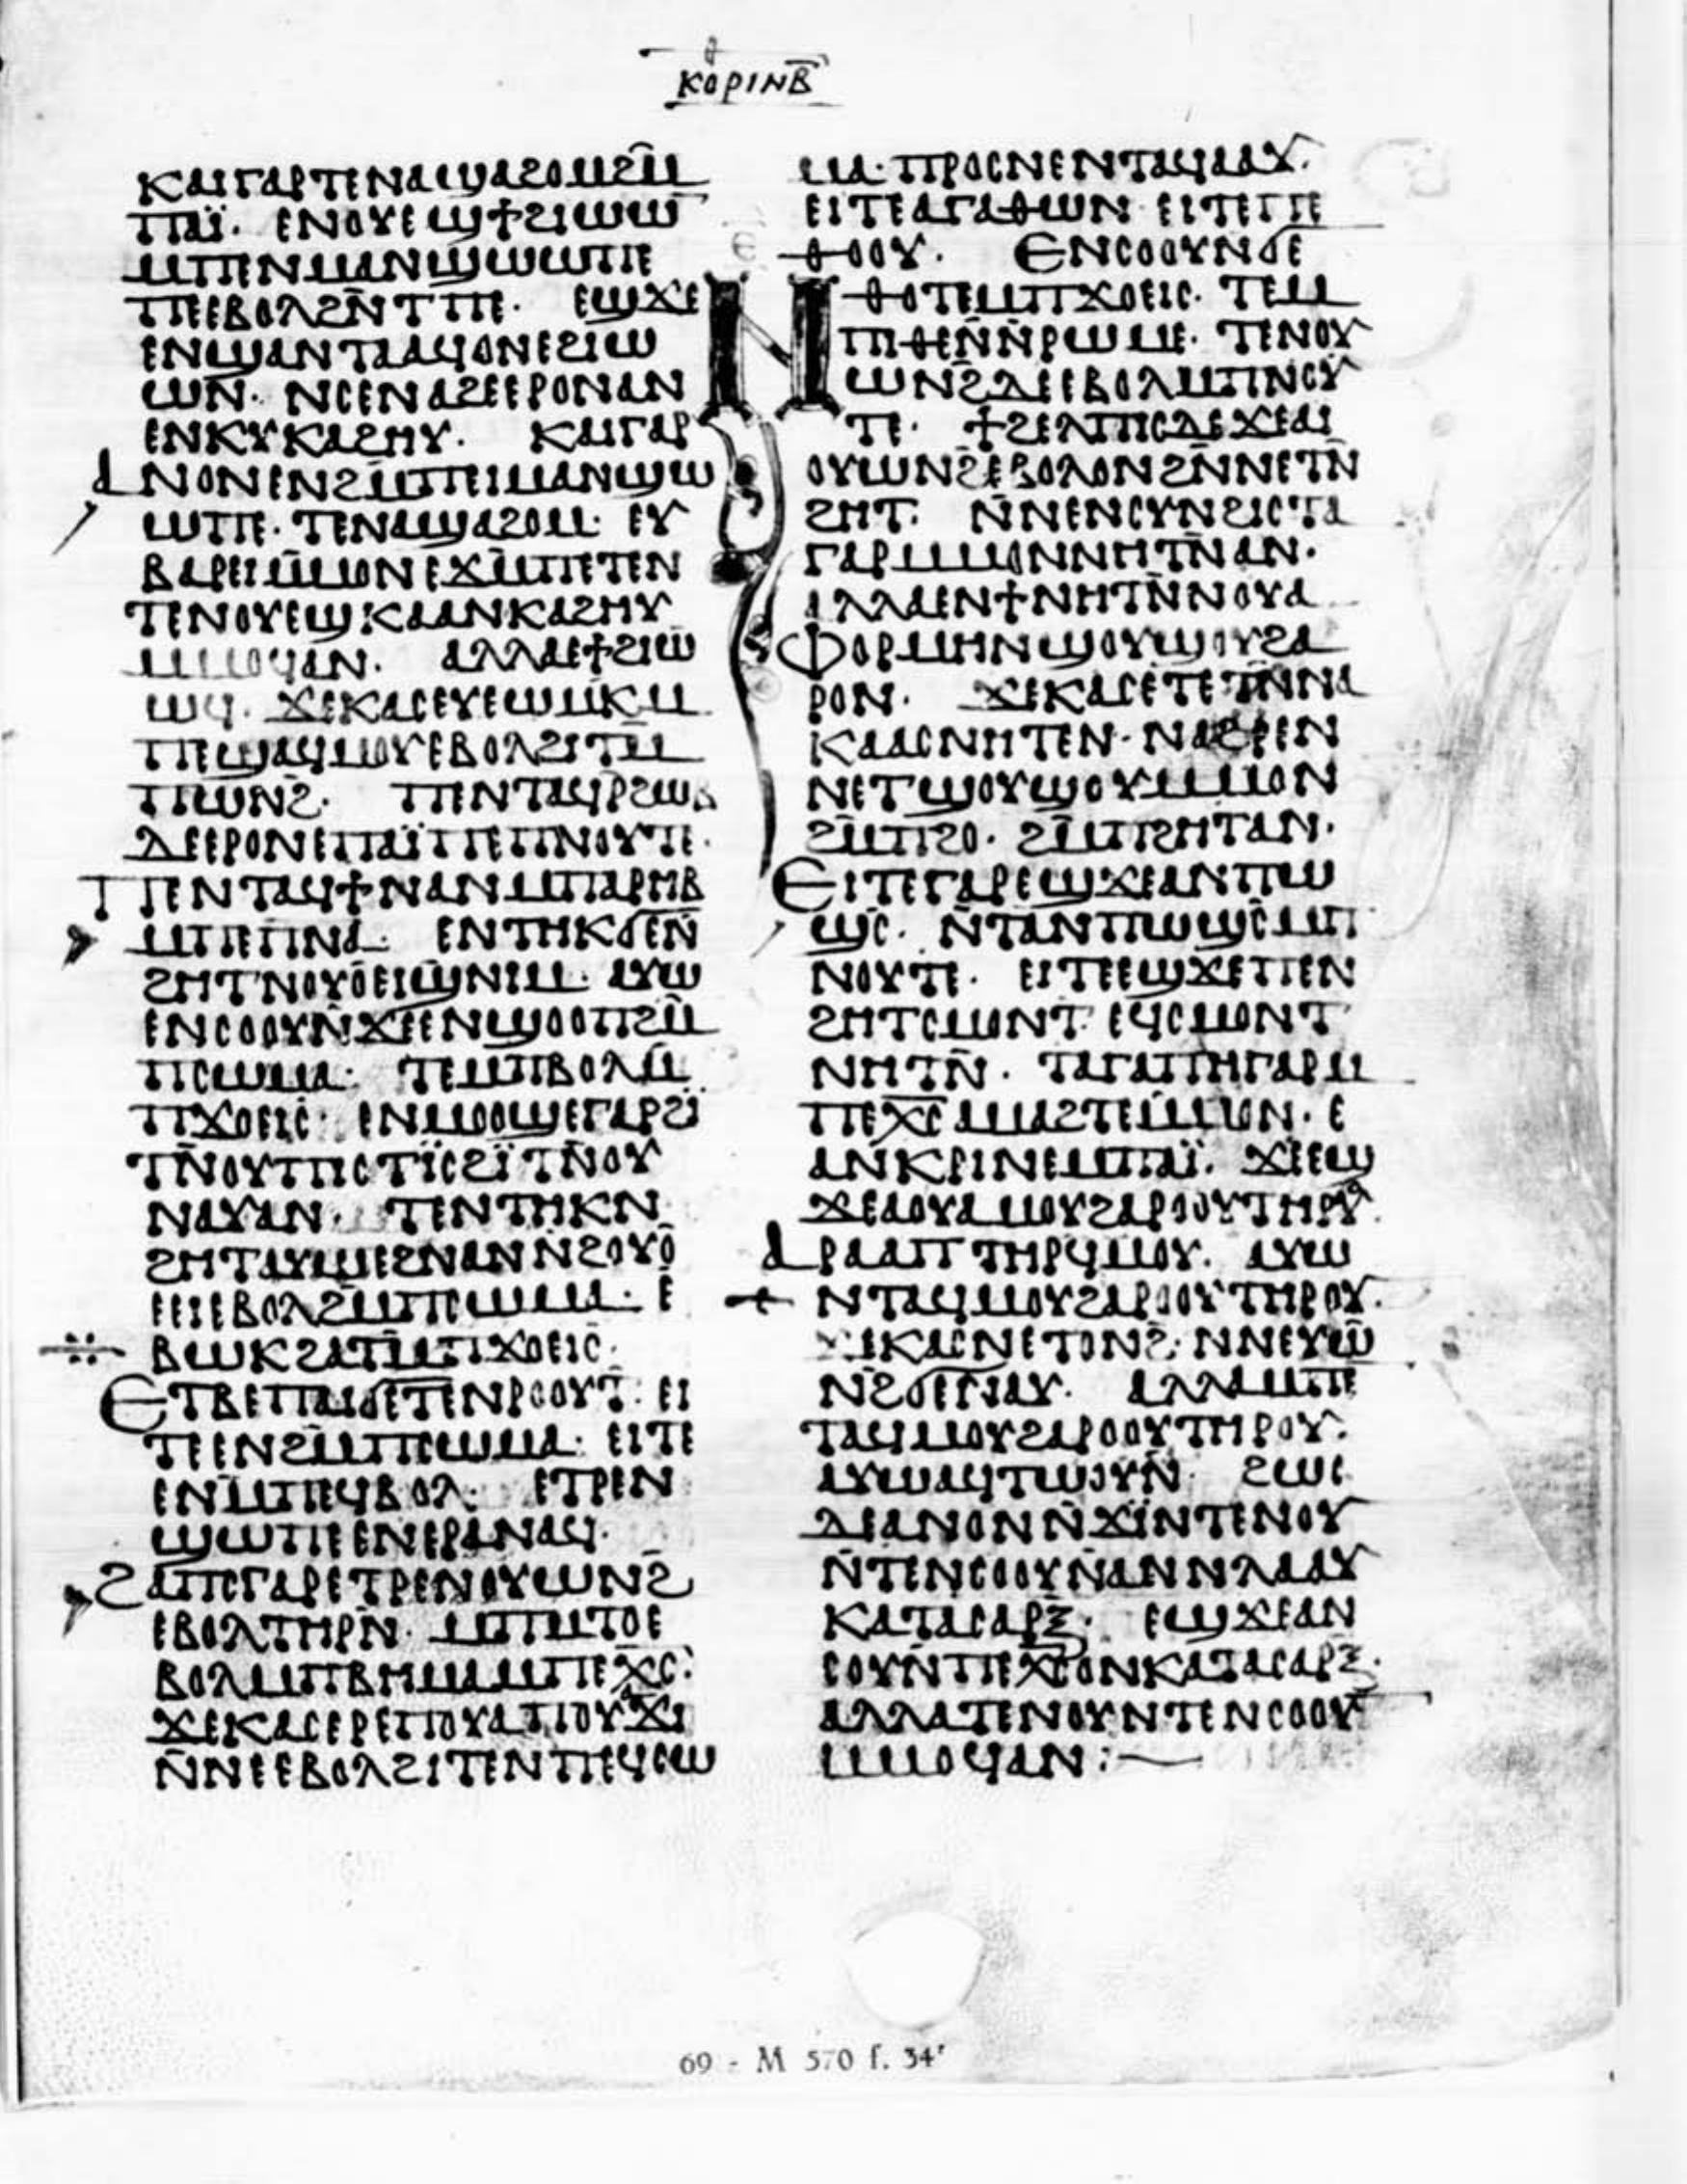 ⲕⲟⲣⲓⲛⲃ̅
ⲕⲁⲓⲅⲁⲣⲧⲉⲛⲁϣⲁϩⲟⲙϩⲙ̅
ⲡⲁⲓ̈· ⲉⲛⲟⲩⲉϣϯϩⲓⲱⲱ
ⲙⲡⲉⲛⲙⲁⲛϣⲱⲱⲡⲉ
ⲡⲉⲉⲃⲟⲗϩⲛ̅ⲧⲡⲉ· ⲉϣϫⲉ
ⲉⲛϣⲁⲛⲧⲁⲁϥⲟⲛⲉϩⲓⲱ
ⲱⲛ· ⲛⲥⲉⲛⲁϩⲉⲉⲣⲟⲛⲁⲛ
ⲉⲛⲕⲩⲕⲁϩⲏⲩ· ⲕⲁⲓⲅⲁⲣ
ⲁⲛⲟⲛⲉⲛϩⲙ̅ⲡⲉⲓⲙⲁⲛϣⲱ
ⲱⲡⲉ· ⲧⲉⲛⲁϣⲁϩⲟⲙ· ⲉⲩ
ⲃⲁⲣⲉⲓⲙ̅ⲙⲟⲛⲉϫⲙ̅ⲡⲉⲧⲉⲛ
ⲧⲉⲛⲟⲩⲉϣⲕⲁⲁⲛⲕⲁϩⲏⲩ
ⲙⲙⲟϥⲁⲛ· ⲁⲗⲗⲁⲉϯϩⲓⲱ
ⲱϥ· ϫⲉⲕⲁⲥⲉⲩⲉⲱⲙⲕⲙ
ⲡⲉϣⲁϥⲙⲟⲩⲉⲃⲟⲗϩⲓⲧⲙ̅
ⲡⲱⲛϩ· ⲡⲉⲛⲧⲁϥⲣϩⲱⲃ
ⲇⲉⲉⲣⲟⲛⲉⲡⲁⲓ̈ⲡⲉⲡⲛⲟⲩⲧⲉ·
ⲡⲉⲛⲧⲁϥϯⲛⲁⲛⲙⲡⲁⲣⲏⲃ
ⲙⲡⲉⲡⲛⲁ̅· ⲉⲛⲧⲏⲕϭⲉⲛ̅
ϩⲏⲧⲛⲟⲩⲟⲉⲓϣⲛⲓⲙ· ⲁⲩⲱ
ⲉⲛⲥⲟⲟⲩⲛ̅ϫⲉⲉⲛϣⲟⲟⲡϩⲙ̅
ⲡⲥⲱⲙⲁ· ⲧⲉⲙⲡⲃⲟⲗⲙ̅
ⲡϫⲟⲉⲓⲥ· ⲉⲛⲙⲟⲟϣⲉⲅⲁⲣϩⲓ̈
ⲧⲛ̅ⲟⲩⲡⲓⲥⲧⲓ̈ⲥϩⲓ̈ⲧⲛ̅ⲟⲩ
ⲛⲁⲩⲁⲛ· ⲧⲉⲛⲧⲏⲕⲛ
ϩⲏⲧⲁⲩⲱⲉϩⲛⲁⲛⲛϩⲟⲩⲟ̅
ⲉⲉⲓⲉⲃⲟⲗϩⲙ̅ⲡⲥⲱⲙⲁ· ⲉ
ⲃⲱⲕϩⲁⲧⲙ̅ⲡϫⲟⲉⲓⲥ·
ⲉⲧⲃⲉⲡⲁⲓϭⲉⲧⲉⲛⲣⲟⲟⲩⲧ· ⲉⲓ
ⲧⲉⲉⲛϩⲙ̅ⲡⲥⲱⲙⲁ· ⲉⲓⲧⲉ
ⲉⲛⲙ̅ⲡⲉϥⲃⲟⲗ· ⲉⲧⲣⲉⲛ
ϣⲱⲡⲉⲉⲛⲉⲣⲁⲛⲁϥ·
ϩⲁⲡⲥⲅⲁⲣⲉⲧⲣⲉⲛⲟⲩⲱⲛϩ
ⲉⲃⲟⲗⲧⲏⲣⲛ̅· ⲙ̅ⲡⲙ̅ⲧⲟⲉ
ⲃⲟⲗⲙⲡⲃⲏⲙⲁⲙⲡⲉⲭ̅ⲥ̅·
ϫⲉⲕⲁⲥⲉⲣⲉⲡⲟⲩⲁⲡⲟⲩⲁϫⲓ
ⲛ̅ⲛⲉⲉⲃⲟⲗϩⲓⲧⲉⲛⲡⲉϥⲥⲱ
ⲙⲁ· ⲡⲣⲟⲥⲛⲉⲛⲧⲁϥⲁⲁⲩ·
ⲉⲓⲧⲉⲁⲅⲁⲑⲱⲛ ⲉⲓⲧⲉⲡⲉ
ⲑⲟⲟⲩ· ⲉⲛⲥⲟⲟⲩⲛϭⲉ
ⲛⲑⲟⲧⲉⲙⲡϫⲟⲉⲓⲥ· ⲧⲉⲙ
ⲡⲓⲑⲉⲛ̅ⲛ̅ⲣⲱⲙⲉ· ⲧⲉⲛⲟⲩ
ⲱⲛϩⲇⲉⲉⲃⲟⲗⲙⲡⲛⲟⲩ
ⲧⲉ· ϯϩⲉⲗⲡⲓⲥⲇⲉϫⲉⲁⲓ
ⲟⲩⲱⲛϩⲉⲃⲟⲗⲟⲛϩⲛ̅ⲛⲉⲧⲛ
ϩⲏⲧ· ⲛ̅ⲛⲉⲛⲥⲩⲛϩⲓⲥⲧⲁ
ⲅⲁⲣⲙⲙⲟⲛⲛⲏⲧⲛ̅ⲁⲛ·
ⲁⲗⲗⲁⲉⲛϯⲛⲏⲧⲛ̅ⲛⲟⲩⲁ
ⲫⲟⲣⲙⲏⲛϣⲟⲩϣⲟⲩϩⲁ
ⲣⲟⲛ· ϫⲉⲕⲁⲥⲉⲧⲉⲧⲛ̅ⲛⲁ
ⲕⲁⲁⲥⲛⲏⲧⲉⲛ· ⲛⲁϩⲣⲉⲛ
ⲛⲉⲧϣⲟⲩϣⲟⲩⲙⲙⲟⲛ
ϩⲙ̅ⲡϩⲟ· ϩⲙ̅ⲡϩⲏⲧⲁⲛ·
ⲉⲓⲧⲉⲅⲁⲣⲉϣϫⲉⲁⲛⲡⲱ
ϣⲥ̅· ⲛ̅ⲧⲁⲛⲡⲱϣⲥ̅ⲙⲡ
ⲛⲟⲩⲧⲉ· ⲉⲓⲧⲉⲉϣϫⲉⲡⲉⲛ
ϩⲏⲧⲥⲙⲟⲛⲧ· ⲉϥⲥⲙⲟⲛⲧ
ⲛⲏⲧⲛ̅· ⲧⲁⲅⲁⲡⲏⲅⲁⲣⲙ
ⲡⲉⲭ̅ⲥ̅ⲁⲙⲁϩⲧⲉⲙ̅ⲙⲟⲛ· ⲉ
ⲁⲛⲕⲣⲓⲛⲉⲙⲡⲁⲓ̈· ϫⲉⲉϣ
ϫⲉⲁⲟⲩⲁⲙⲟⲩϩⲁⲣⲟⲟⲩⲧⲏⲣⲟⲩ·
ⲁⲣⲁⲁⲡⲧⲏⲣϥⲙⲟⲩ· ⲁⲩⲱ
ⲛⲧⲁϥⲙⲟⲩϩⲁⲣⲟⲟⲩⲧⲏⲣⲟⲩ·
ϫⲉⲕⲁⲥⲛⲉⲧⲟⲛϩ· ⲛⲛⲉⲩⲱ̅
ⲛϩϭⲉⲛⲁⲩ· ⲁⲗⲗⲁⲙⲡⲉ
ⲧⲁϥⲙⲟⲩϩⲁⲣⲟⲟⲩⲧⲏⲣⲟⲩ·
ⲁⲩⲱⲁϥⲧⲱⲟⲩⲛ· ϩⲱⲥ
ⲇⲉⲁⲛⲟⲛⲛ̅ϫⲓⲛⲧⲉⲛⲟⲩ
ⲛ̅ⲧⲉⲛⲥⲟⲟⲩⲛ̅ⲁⲛⲛⲗⲁⲁⲩ
ⲕⲁⲧⲁⲥⲁⲣⲝ· ⲉϣϫⲉⲁⲛ
ⲥⲟⲩⲛ̅ⲡⲉⲭ̅ⲥ̅ⲟⲛⲕⲁⲧⲁⲥⲁⲣⲝ·
ⲁⲗⲗⲁⲧⲉⲛⲟⲩⲛⲧⲉⲛⲥⲟⲟⲩ
ⲙⲙⲟϥⲁⲛ:—
69 - M 570 f. 34ʳ